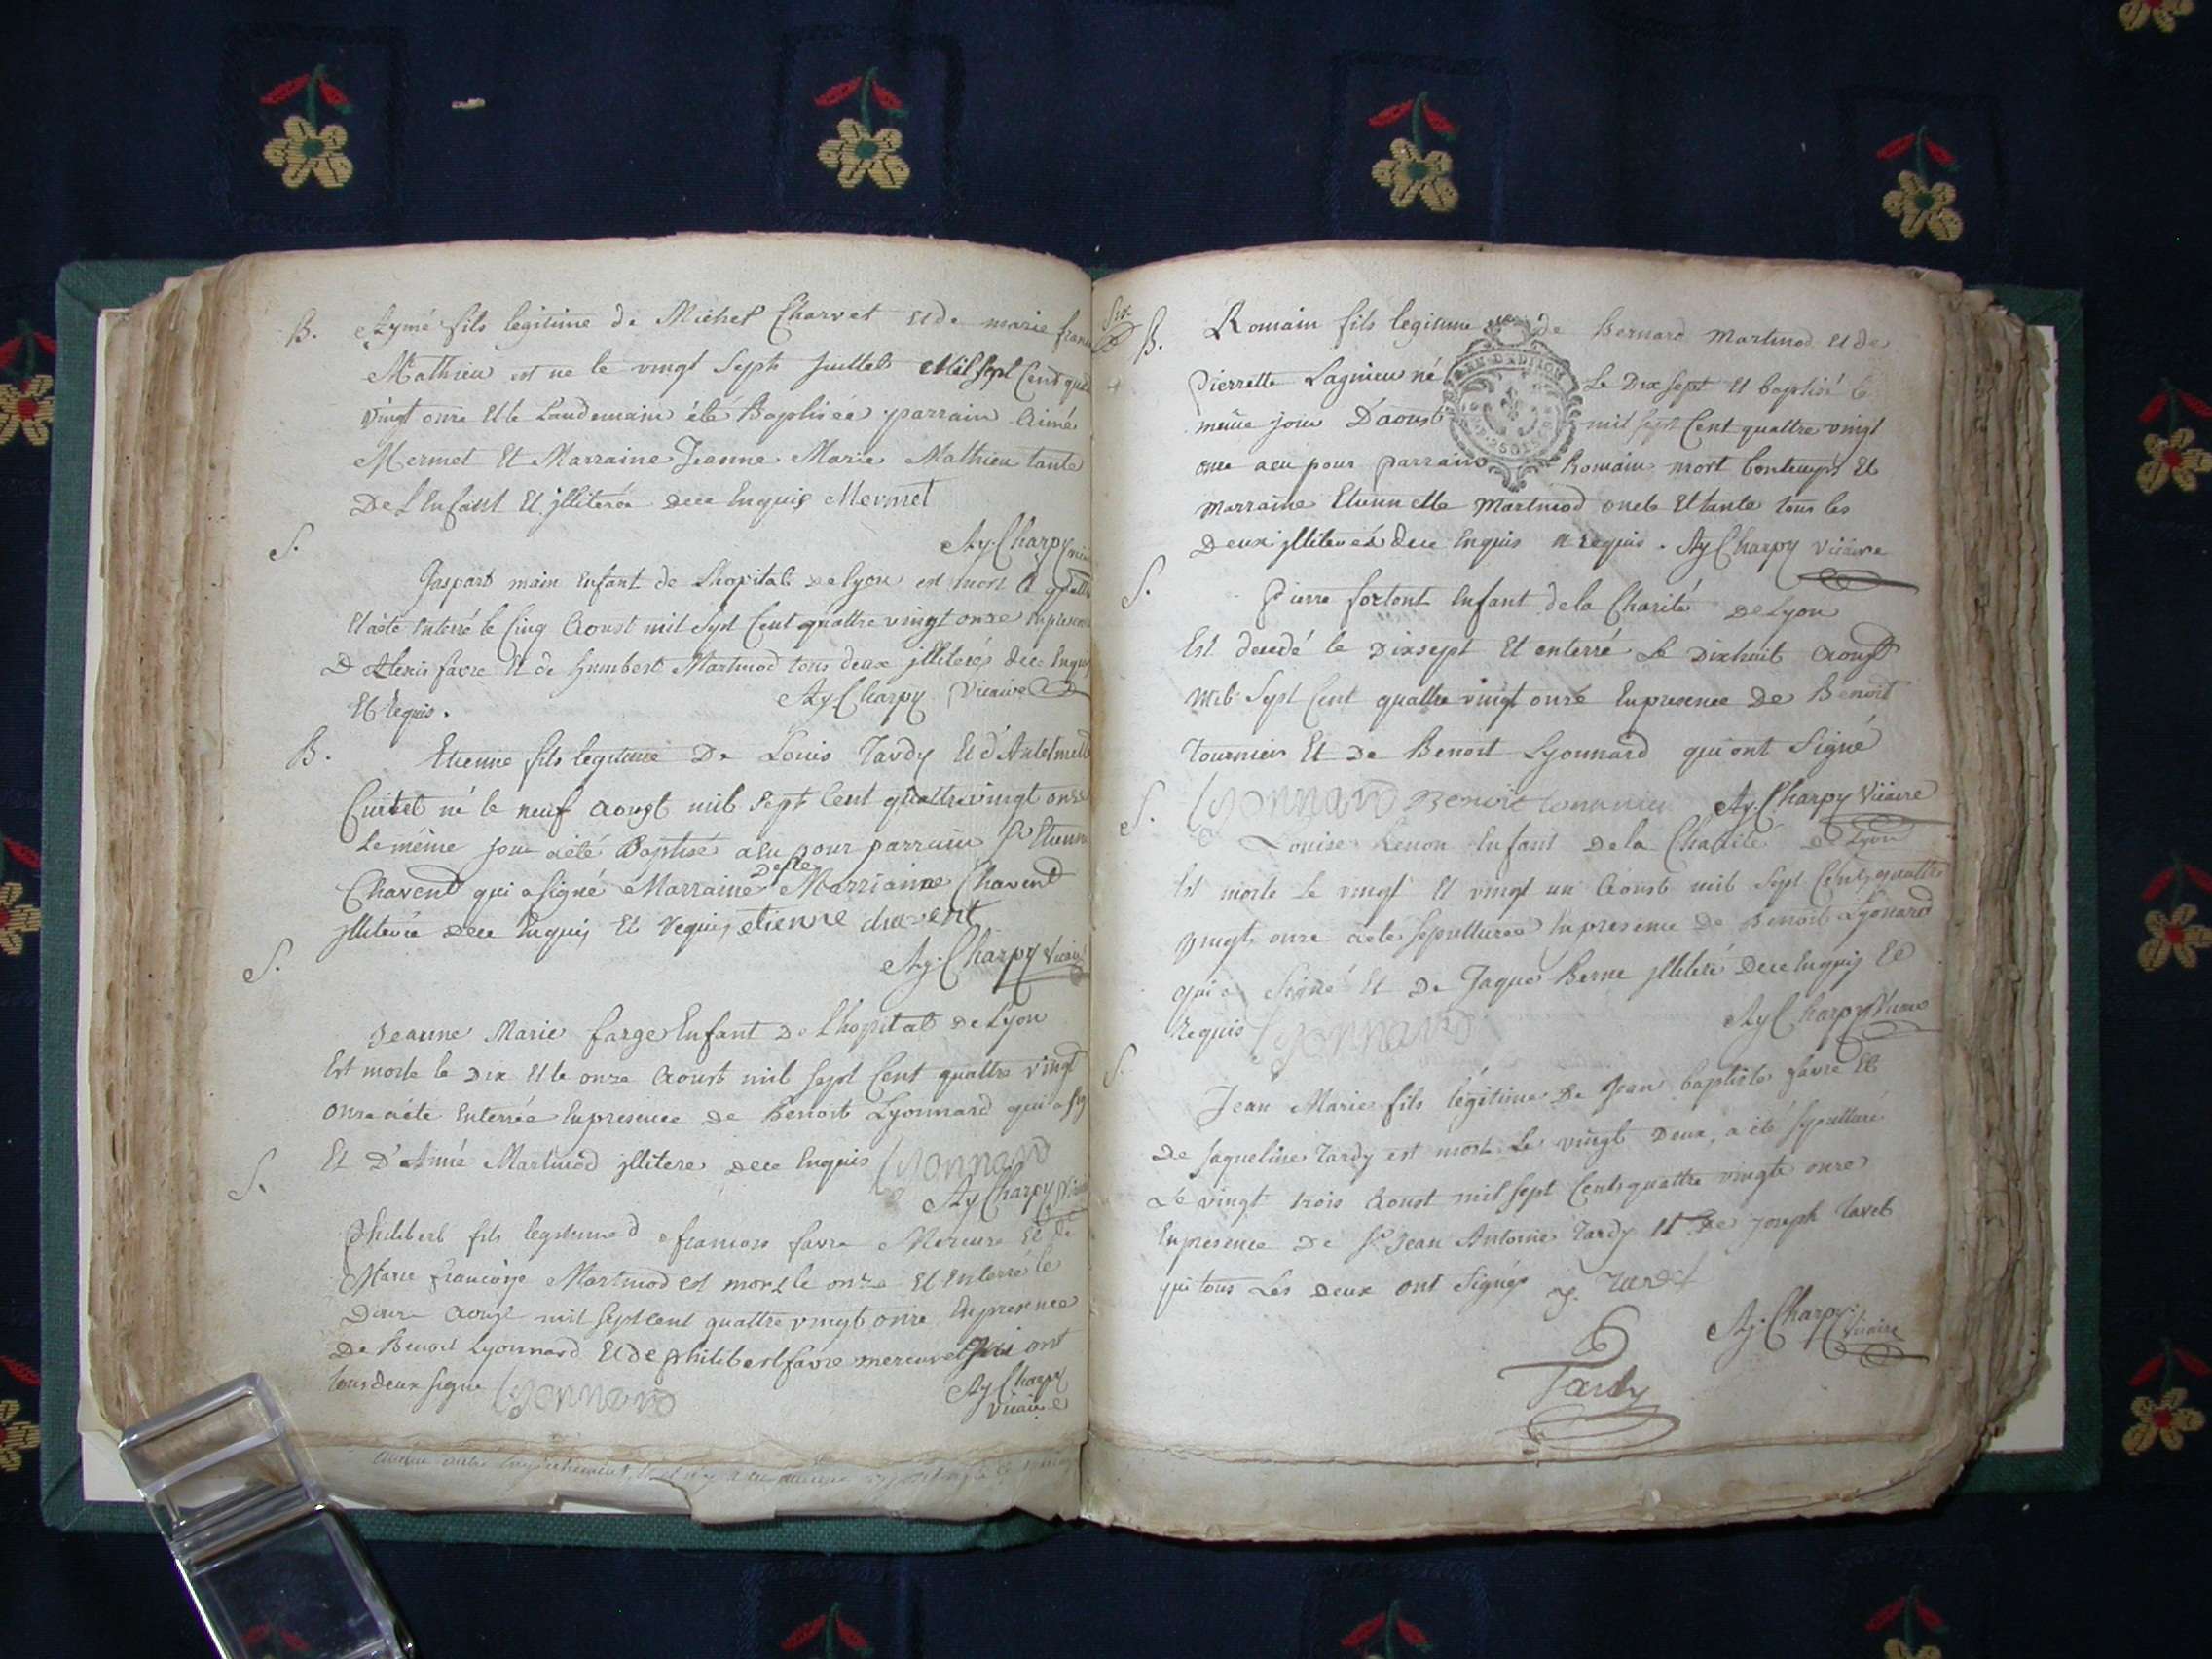 B. Aymé fils legitime de Michel Charvet et de marie
Mathieu est ne le vingt Sept juillet Mil sept Cent
vingt onze et le Landemain été Baptisée parrain Aimé
Mermet Et Marraine Jeanne Marie Mathieu tante
De L'Enfant Et jlliterée dece Enquis Mermet
Ay. Charpy
S.
Gaspard main Enfant de Lhopital de lyon est mort le
Et aété Enterré le Cinq Aoust mil Sept Cent quattre vingt onze
D'Alexis favre Et de humbert Martinod tous deux jlliterés dece
Et Requis. Ay. Charpy Vicaire
B. Etienne fils legitime De Louis Tardy Et d'
né le neuf Aoust mil Sept Cent quattre vingt onze
Le même jour aété Baptisé a eu pour parrain Sr Etienne
Delle
Chavent qui a signé Marraine Marrianne Chavent
jlliterée dece Enquis Et Requis etienne chavent
S. Ay. Charpy Vicaire
Jeanne Marie farge Enfant De Lhopital de Lyon
Est morte le Dix Et le onze Aoust mil Sept Cent quattre vingt
Onze aété Enterrée En presence de Benoit Lyonnard qui a
Et D'Aimé Martinod jllitere dece Enquis Lyonnard
S. Ay Charpy
Philibert fils legitime d françois favre Mercure Et de
Marie françoise Martinod est mort le onze Et Enterré le
Douze Aoust mil Sept cent quattre vingt onze En presence
De Benoit Lyonnard Et de philibert favre mercure qui ont
tous deux signe Lyonnard Ay Charpy
Vicaire
B. Romain fils legitime de Bernard Martinod et de
Pierrette Lagnieu né Le Dix sept Et baptisé le
même jour D'aoust mil sept Cent quattre vingt
onze a eu pour parrain Romain mort bontemps Et
marraine Etiennette Martinod oncle Et tante tous les
Deux jlliterés dece Enquis Et Requis. Ay Charpy Vicaire
S.
Pierre fortont Enfant de la Charité De Lyon
Est decedé le Dixsept Et enterré Le Dixhuit Aoust
Mil Sept Cent quattre vingt onze En presence De Benoit
Tournier Et De Benoit Lyonnard qui ont Signé
S. Lyonnard Benoit tournier Ay. Charpy Vicaire
Louise Enfant De la Charité de Lyon
Est morte Le vingt Et vingt un Aoust mil Sept Cent quattre
vingt onze aété sepulturée En presence De Benoit Lyonard
qui a Signé Et De Jaque Berne jlliteré Dece Enquis Et
Requis Lyonnard Ay Charpy Vicaire
S.
Jean Marie fils légitime De Jean baptiste favre Et
De Jaqueline Tardy est mort Le vingt Deux, a été Sepulturé
Le vingt trois Aoust mil Sept Cents quattre vingts onze
En presence De Sr Jean Antoine Tardy Et De joseph tavel
qui tous Les Deux ont Signés
Ay. Charpy
Vicaire
Tardy